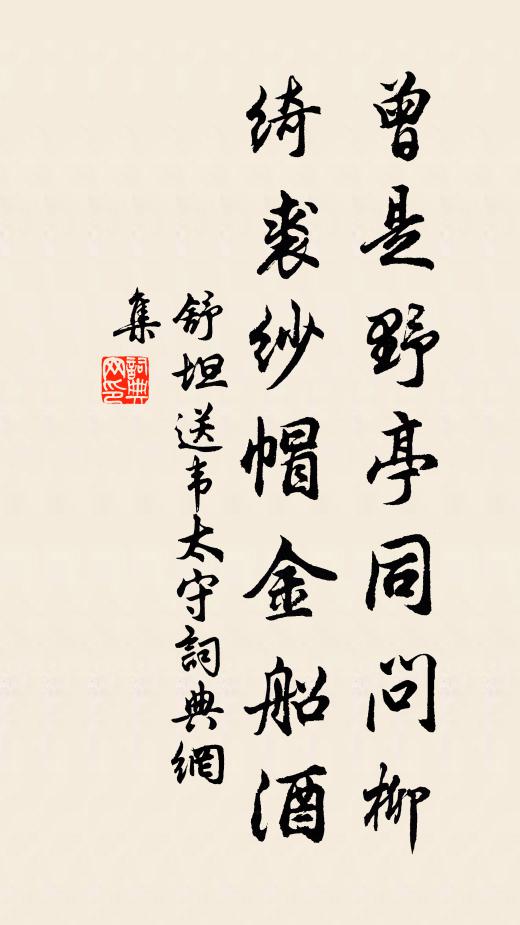 曾是野亭同问柳
绮裘纱帽金船酒
舒坦送韦太守詞典網
集
詞典
网印